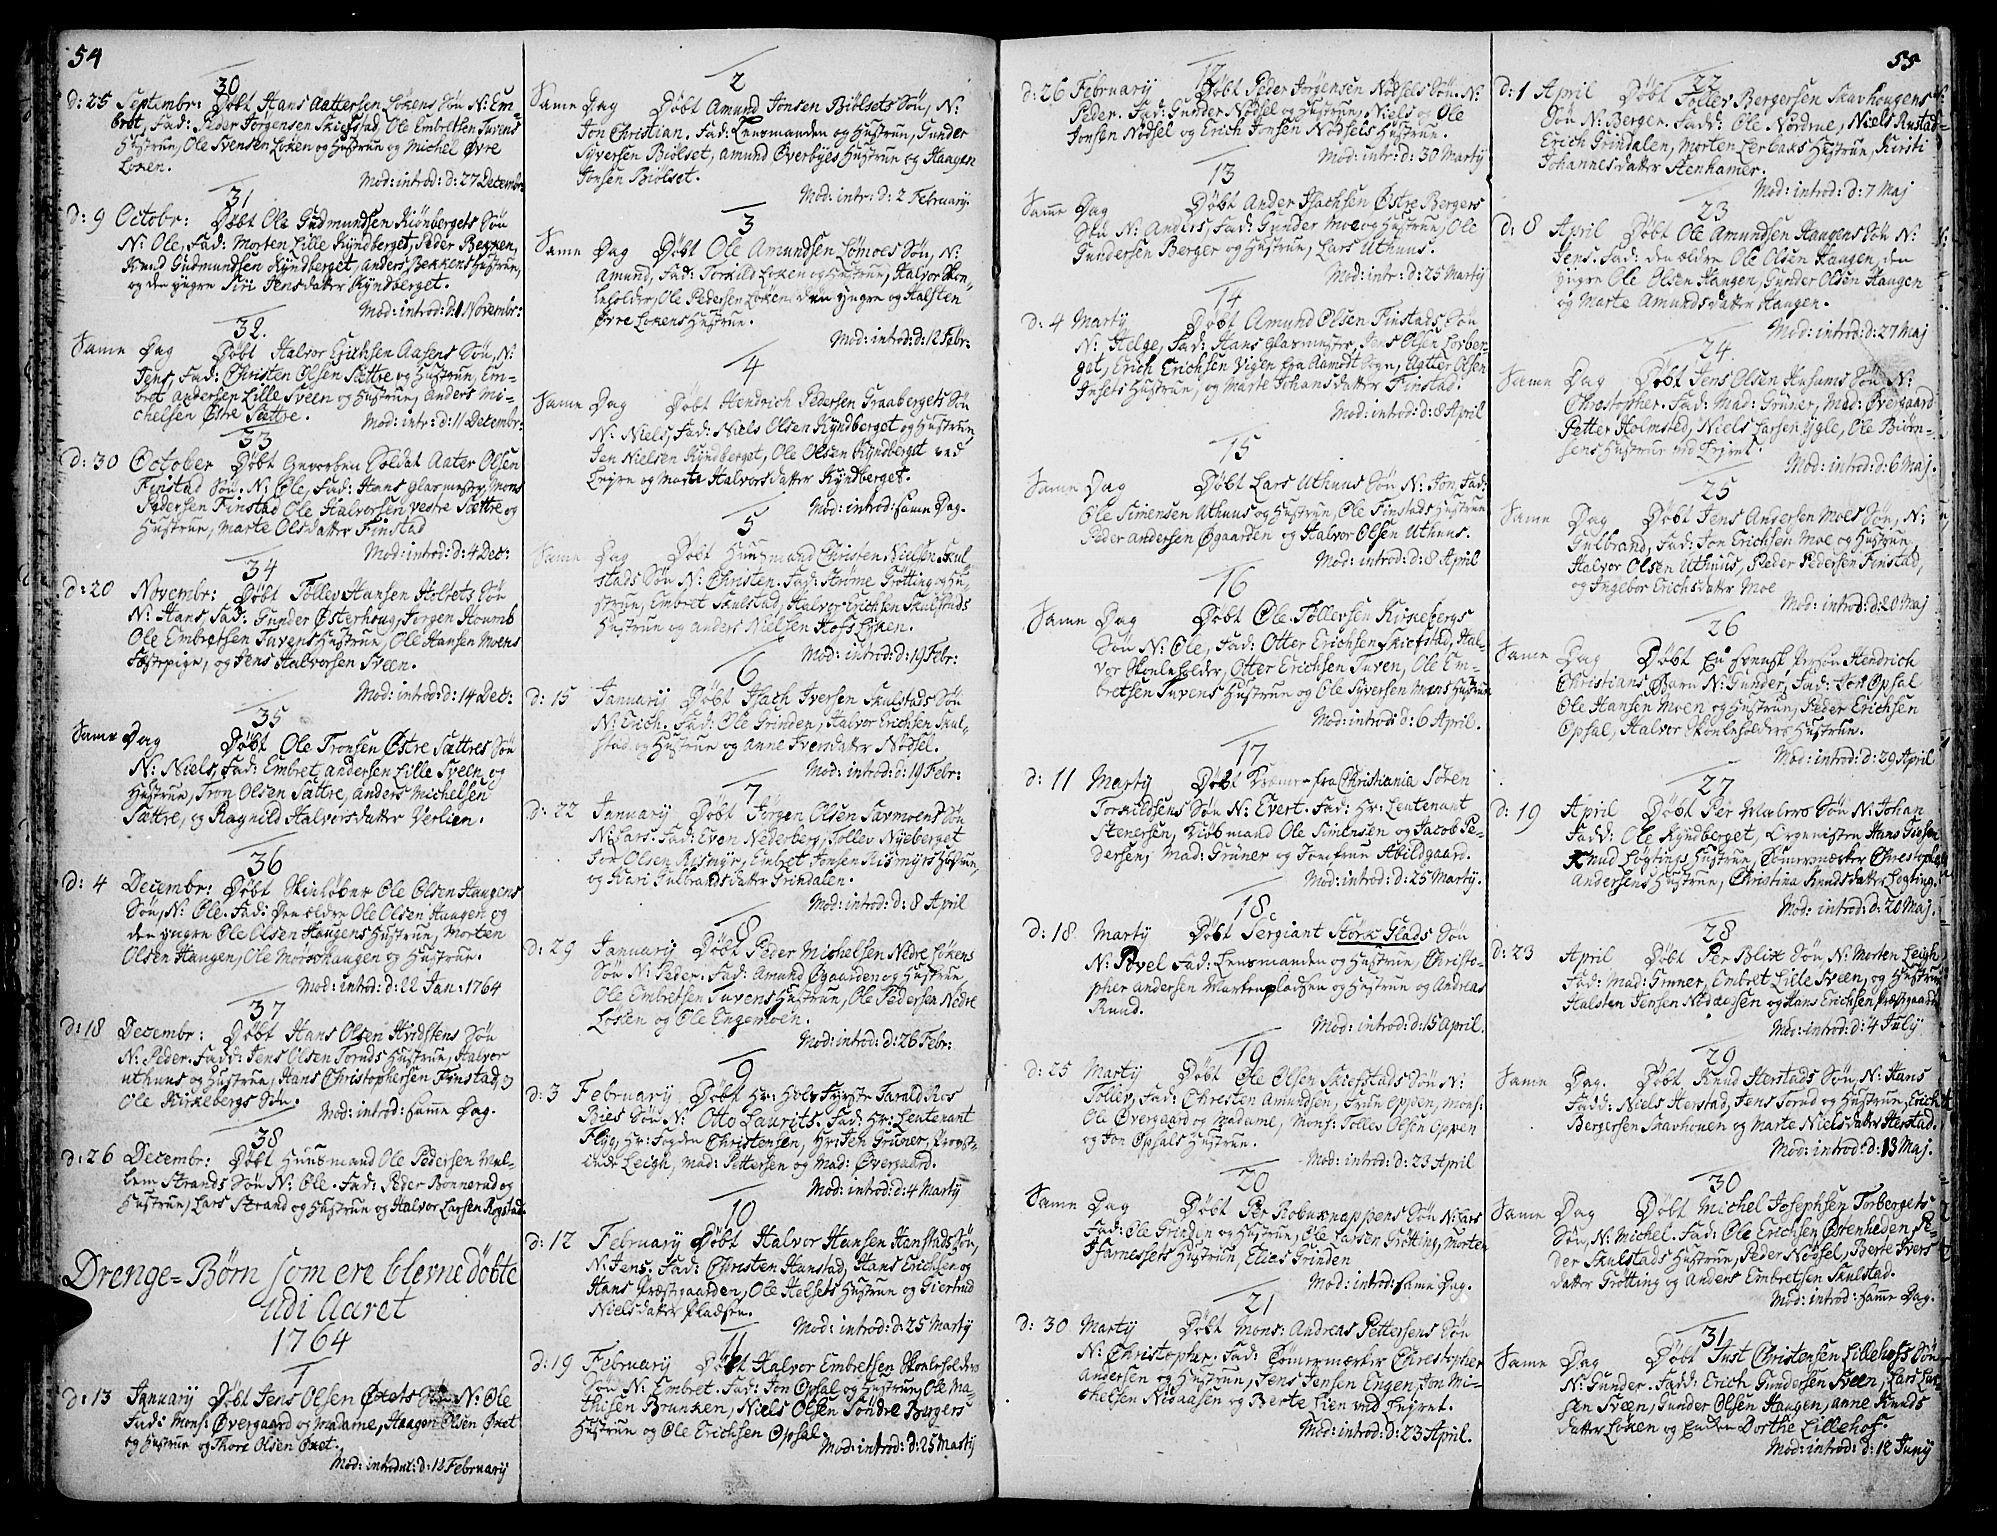 54
30
d: 25 Septembr: Døbt Hans Aattersen Løkens Søn N: Em-
bret, Fad: Peder Jørgensen Skiefstad, Ole Embretsen Tuvens
Hustrue, Ole Svensen Løken og Hustrue og Michel Øvre
Løken.
Mod: introd: d: 27 Decembr:
31
d: 9 Octobr: Døbt Ole Gudmundsen Kiønbergets Søn
N: Ole, Fad: Morten Lille Kyndberget, Peder Bekken,
Knud Gudmundsen Kyndberget, Anders Bekkens Hustrue,
og den yngre Siri Jensdatter Kyndberget.
Mod: introd: d: 1 Novembr:
32
Same Dag Døbt Halvor Erichsen Aasens Søn, N:
Jens, Fad: Christen Olsen Sættre og Hustrue, Em-
bret Andersen Lille Sveen og Hustrue, Anders Mi-
chelsen Østre Sættre.
Mod: intr: d: 11 Decembr:
33
d: 30 October Døbt Geworben Soldat Aater Olsen
Finstad Søn. N: Ole, Fad: Hans Glasmester, Mons
Pedersen Finstad Ole Halvorsen vestre Sættre og
Hustrue, Marte Olsdatter Finstad
Mod: introd: d: 4 Dec:
34
d: 20 Novembr: Døbt Tollev Hansen Holtets Søn
N: Hans Fad: Gunder Østerhoug, Jørgen Houmb
Ole Embretsen Tuvens Hustrue, Ole Hansen Moens
Fæstepige, og Jens Halvorsen Sveen.
Mod: introd: d: 14 Dec:
35
Same Dag Døbt Ole Tronsen Østre Sættres Søn
N: Niels, Fad: Embret Andersen Lille Sveen og
Hustrue, Tron Olsen Sættre, Anders Michelsen
Sættre, og Ragnild Halvorsdatter Værlien.
36
d: 4 Decembr: Døbt Skiløber Ole Olsen Haugens
Søn, N: Ole. Fad: Den ældre Ole Olsen Haugen og
den yngre Ole Olsen Haugens Hustrue, Morten
Olsen Haugen, Ole Morshaugen og Hustrue.
Mod: introd: d: 22 Jan: 1764
37
d: 18 Decembr: Døbt Hans Olsen Hvidstens Søn
N: Peder. Fadd: Jens Olsen Toruds Hustrue, Halvor
uthuus og Hustrue, Hans Christophersen Finstad, og
Ole Kirkebergs Søn.
Mod: introd: samme Dag.
38
d: 26 Decembr: Døbt Huusmand Ole Pedersen Mel-
lem Strands Søn N: Ole. Fad: Peder Bonnerud og
Hustrue, Lars Strand og Hustrue og Halvor Larsen Rogstad.
Drenge=Børn som ere blevne døbte
udi Aaret
1764
1
d: 13 January Døbt Jens Olsen Øxets Søn N: Ole
Fad: Mons: Øvergaard og Madame, Haagen Olsen Øxet
og Hustrue og Thore Olsen Øxet.
Mod: introd: d: 12 February
2
Same Dag Døbt Amund Jonsen Biølsets Søn, N:
Jon Christian. Fad: Lensmanden og Hustrue, Gunder
Syversen Biølset, Amund Øverbyes Hustrue og Haagen
Jonsen Biølset.
Mod: intr: d: 2 February.
3
Same Dag Døbt Ole Amundsen Lømoes Søn, N:
Amund, Fad: Torkild Løken og Hustrue, Halvor Skon-
leholder, Ole Pedersen Løken den yngre og Halsten
Øvre Løkens Hustrue.
Mod: introd: d: 12 Febr:
4
Same Dag Døbt Hendrich Pedersen Graabergets Søn
N: Niels, Fad: Niels Olsen Kyndberget og Hustrue
Jen Nielsen Kyndberget, Ole Olsen Kyndberget ved
Leyre og Marte Halvorsdatter Kyndberget.
Mod: introd: samme Dag.
5
Same Dag Døbt Huusmand Christen Nielsen Skul-
stads Søn N: Christen. Fad: Strøme Grötting og Hu-
strue, Embret Skulstad, Halvor Erichsen Skulstads
Hustrue og Anders Nielsen Hofs Løken.
Mod: introd: d: 19 Febr:
6
d: 15 January Døbt Isach Iversen Skulstads Søn
N: Erich. Fad: Ole Grinden, Halvor Erichsen Skul-
stad og Hustrue og Anne Iversdatter Nödsel.
Mod: introd: d: 19 Febr:
7
d: 22 January Døbt Jørgen Olsen Savmoens Søn
N: Lars. Fad: Even Nederberg, Tollev Nyeberget
Jon Olsen Rismyr, Embret Jonsen Rismyrs Hustrue,
og Kari Gulbrandsdatter Grindalen.
Mod: introd: d: 8 April
8
d: 29 January Døbt Peder Michelsen Nedre Løkens
Søn N: Peder. Fad: Amund Øgaarden og Hustrue,
Ole Embretsen Tuvens Hustrue, Ole Pedersen Nedre
Løsen og Ole Engemoen.
Mod: introd: d: 26 Febr:
9
d: 3 February Døbt Hr: Holzførster Tarald Ros
Bies Søn N: Otto Laurits. Fad: Hr: Leutenant
Flyg, Hr: Fogden Christensen, Hr: Jen Grüner, Provst-
inde Leigh, Mad: Pettersen og Mad: Øvergaard.
Mod: introd: d: 4 Marty
10
d: 12 February Døbt Halvor Hansen Hanstads Søn,
N: Jens. Fad: Christen Hanstad, Hans Erichsen og
Hans Præstgaarden, Ole Helsets Hustrue og Giertrud
Nielsdatter Pladsen.
Mod: introd: d: 25 Marty
11
d: 19 February Døbt Halvor Embretsen Skonleholders
Søn N: Embret. Fad: Jon Opsal og Hustrue, Ole Ma-
thisen Brunken, Niels Olsen Søndre Bergers
Hustrue og Ole Erichsen Opsal.
Mod: introd: d: 25 Marty
55
12
d: 26 February Døbt Peder Jørgensen Nödsels Søn. N:
Peder. Fad: Gunder Nödsel og Hustrue, Niels og Ole
Jonsen Nödsel og Erich Jonsen Nödsels Hustrue.
Mod: intr: d: 30 Marty
13
Same Dag Døbt Ander Isachsen Østre Bergers
Søn N: Anders, Fad: Gunder Moe og Hustrue, Ole
Gundersen Berger og Hustrue, Lars Uthuus.
Mod: intr: d: 25 Marty
14
d: 4 Marty Døbt Amund Olsen Finstads Søn
N: Helge, Fad: Hans Glasmester, Jens Olsen Torber-
get, Erich Erichsen Vigen fra Aamodt Sogn, Aatter Olsen
Insets Hustrue, og Marte Johansdatter Finstad.
Mod: introd: d: 8 April
15
Same Dag Døbt Lars Uthuus Søn N: Jon, Fad:
Ole Simensen Uthuus og Hustrue, Ole Finstads Hustrue
Peder Andersen Øgaarden og Halvor Olsen Uthuus.
Mod: introd: d: 8 April
16
Same Dag Døbt Ole Tollevsen Kirkebergs
Søn N: Ole, Fad: Otter Erichsen Skiefstad, Hal-
vor Skonleholder, Otter Erichsen Tuven, Ole Em-
bretsen Tuvens Hustrue og Ole Syversen Moens Hustrue
Mod: introd: d: 6 April.
17
d: 11 Marty Døbt Kræmer fra Christiania Søren
Torkildsens Søn N: Evert. Fad: Hr: Leutenant
Stenersen, Kiøbmand Ole Simensen og Jacob Pe-
dersen, Mad: Grüner og Jomfrue Abildgaard.
Mod: introd: d: 25 Marty.
18
d: 18 Marty Døbt Sergiant Størk Glads Søn
N: Povel Fad: Lensmanden og Hustrue, Christo-
pher Andersen Martenpladsen og Hustrue og Andreas
Ruud.
Mod: introd: d: 15 April.
19
d: 25 Marty Døbt Ole Olsen Skiefstads Søn N:
Tollev, Fad: Christen Amundsen, Frue Oppen, Mons:
Ole Øvergaard og Madame, Mons: Tollev Olsen Oppen
og Jon Opsals Hustrue.
Mod: introd: d: 23 April
20
Same Dag Døbt Per Robusknappens Søn N: Lars
Fad: Ole Grinden og Hustrue, Ole Larsen Grötting, Morten
Isarnessets Hustrue, Elias Grinden
Mod: introd: samme Dag.
21
d: 30 Marty Døbt Mons: Andreas Pettersens Søn
N: Christopher. Fad: Tømermærker Christopher
Andersen og Hustrue, Jens Jensen Engen, Jon Mi-
chelsen Nidaasen og Berte Lien ved Leyret.
Mod: introd: d: 23 April.
22
d: 1 April Døbt Tollev Bergersen Skavhougens
Søn N: Bergen. Fadd: Ole Nordrue, Niels Rustad
Erich Grindalen, Morten Lerbaks Hustrue, Kirsti
Johannesdatter Stenhamer.
Mod: introd: d: 7 Maj
23
d: 8 April Døbt Ole Amundsen Haugens Søn N:
Jens. Fad: den ældre Ole Olsen Haugen, den
yngre Ole Olsen Haugen, Gunder Olsen Haugen
og Marte Amundsdatter Haugen.
Mod: introd: d: 27 Maj
24
Same Dag Døbt Jens Olsen Husums Søn N:
Christopher. Fad: Mad: Grüner, Mad: Øvergaard
Petter Holmsted, Niels Larsen Ygle, Ole Biørn-
sens Hustrue ved Leyret.
Mod: introd: d: 6 Maj.
25
Same Dag Døbt Jens Andersen Moes Søn, N:
Gulbrand, Fad: Jon Erichsen Moe og Hustrue,
Halvor Olsen Uthuus, Peder Pedersen Finstad,
og Ingebor Erichsdatter Moe
Mod: introd: d: 20 Maj
26
Same Dag Døbt En Svensk Person Hendrich
Christians Barn N: Gunder, Fad: Jon Opsal
Ole Hansen Moen og Hustrue, Peder Erichsen
Opsal, Halvor Skonleholders Hustrue.
Mod: introd: d: 29 April
27
d: 19 April Døbt Per Malmro Søn N: Johan
Fadd: Ole Kyndberget, Organistre Hans Jensen
Knud Logtings Hustrue, Tømermærker Christopher
Andersens Hustrue, Christina Knudsdatter Logting.
Mod: introd: d: 20 Maj.
28
d: 23 April Døbt Per Blix Søn N: Morten Leigh
Fad: Mad: Gruner, Embret Lille Sveen, og Hustrue
Halsten Jensen Nidaasen og Hans Erichsen Præstgaarden
Mod: introd: d: 4 July
29
Same Dag. Døbt Knud Herstads Søn, N: Hans
Fadd: Niels Herstad, Jens Torud og Hustrue, Erich
Bergersen Skavhouen og Marte Nielsdatter Herstad.
Mod: introd: d: 13 Maj.
30
Same Dag Døbt Michel Josephsen Torbergets
Søn, N: Michel. Fad: Ole Erichsen Brenheden, Pe-
der Skulstads Hustrue, Peder Nödsel, Berte Ivers
datter Grötting og Anders Embretsen Skulstad.
Mod: introd: samme Dag.
31
Same Dag Døbt Just Christensen Lillehofs Søn
N: Gunder. Fadd: Erich Gundersen Sveen, Lars Lar-
sen Sveen, Gunder Olsen Haugen, Anne Knuds
datter Løken og Enken Dorthe Lillehof.
Mod: introd: d: 12 Juny